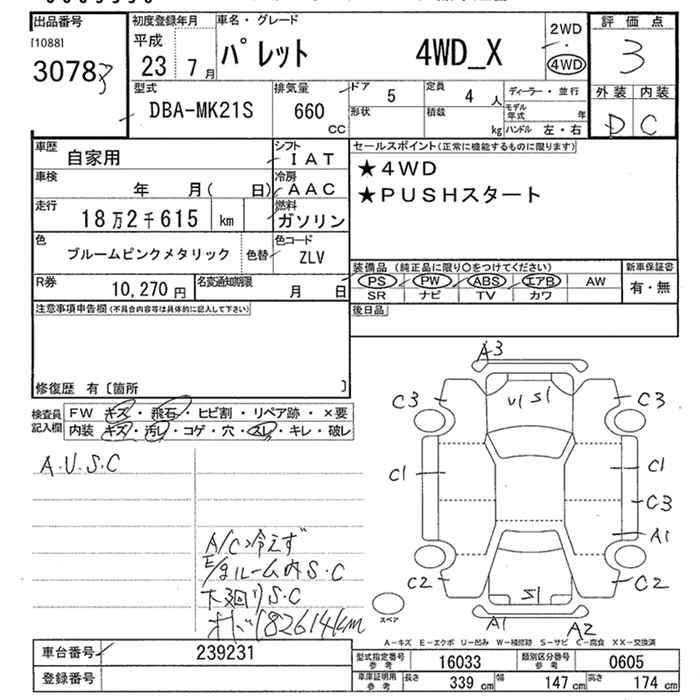 出品番号 初度登録年月 車名・グレード 2WD 評価点
[1088] 平成 パレット 4WD_X ・ 3
3078 23年 7月 4WD 外装 内装
型式 排気量 ドア 5 定員 4人 ディーラー・並行 D C
DBA-MK21S 660cc 形状 積載 kg モデル年式 年 ハンドル 左・右
車歴 自家用 シフト IAT セールスポイント(正常に機能するものに限ります)
車検 年 月( 日) 冷房 AAC ★4WD
走行 18万2千615 km 燃料 ガソリン ★PUSHスタート
色 ブルームピンクメタリック 色替 色コード ZLV
装備品 (純正品に限り○をつけてください) 新車保証書
R券 10,270円 名変通知期限 月 日 PS PW ABS エアB AW 有・無
SR ナビ TV カワ
注意事項申告欄(不具合内容等は具体的に記入して下さい) 後日品
修復歴 有 [箇所 ]
検査員記入欄 FW キズ・飛石・ヒビ割・リペア跡・×要
内装 キズ・汚し・コゲ・穴・スレ・キレ・破レ
A.U.S.C
A/C冷えず
E/gルーム内S.C
下廻りS.C
182614km
A3
C3 U1 S1 C3
C1 C1
C3
A1
C2 S1 C2
A1 A2
スペア
A-キズ E-エクボ U-凹み W-補修跡 S-サビ C-腐食 XX-交換済
車台番号 239231 型式指定番号 参考 16033 類別区分番号 参考 0605
登録番号 車庫証明用 参考 長さ 339 cm 幅 147 cm 高さ 174 cm